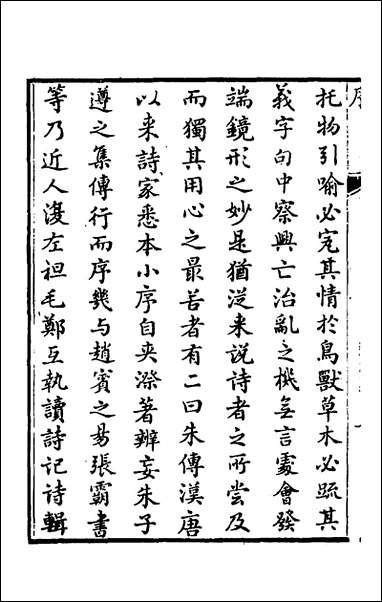 序
托物引喻必究其情於鳥獸草木必疏其
義字句中察興亡治亂之機無言處會發
端鏡形之妙是猶從来說诗者之所尝及
而獨其用心之最苦者有二曰朱傳漢唐
以来詩家悉本小序自夾漈著辨妄朱子
遵之集傳行而序幾与趙賓之易張霸書
等乃近人漫左袒毛鄭互執讀詩记诗輯